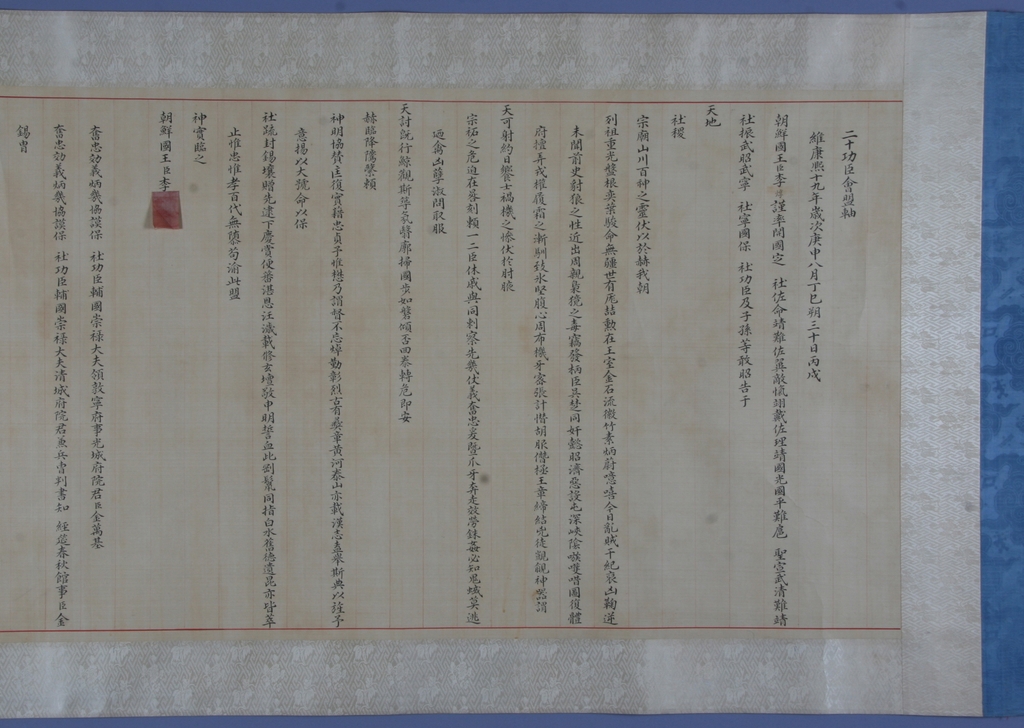 二十功臣會盟軸
維康熙十九年歲次庚申八月丁巳朔三十日丙戌
朝鮮國王臣李 謹率開國定 社佐命靖難佐翼敵愾翊戴佐理靖國光國平難扈 聖宣武清難靖
社振武昭武寧 社寧國保 社功臣及子孫等敢昭告于
天地
社稷
宗廟山川百神之靈伏以於赫我朝
列祖重光盤根奕葉駿命無疆世有厖結勲在王室金石流徽竹素炳蔚噫嘻今日亂賊干紀裒凶鞠逆
未聞前史豺狼之性近出周親梟獍之毒竊發柄臣吳楚同奸懿昭濟惡設心深峽陰嗾嚾喈圖復體
府擅弄戎權履霜之漸馴致氷堅腹心周布機牙密張計憯胡服僭極王章締結兇徒覬覦神器謂
天可射約日饗士禍機之慘伏於肘腋
宗祏之危迫在晷刻賴一二臣休戚與同刺察先幾仗義奮忠爰曁爪牙奔走效勞銖姦必知鬼蜮莫逃
迺禽凶孽淑問取服
天討旣行鯨觀斯築氛翳廓掃國步如磐傾否回泰轉危即安
赫臨降隲繄賴
神明協贊匡復實藉忠貞予惟懋乃謂督不忘焯勤彰烈古有彜章黄河泰山亦載漢志盍擧斯典以註予
意揚以大號命以保
社疏封錫壤贈先逮下慶賞便蕃湛恩汪濊載修玄壇敬申明誓血此剛鬣同指白水舊德遺昆亦皆萃
止惟忠惟孝百代無隳苟渝此盟
神實臨之
朝鮮國王臣李
奮忠効義炳幾協謨保 社功臣輔國崇祿大夫領敦寧府事光城府院君臣金萬基
奮忠効義炳幾協謨保 社功臣輔國崇祿大夫清城府院君兼兵曹判書知 經筵春秋館事臣金
錫胄